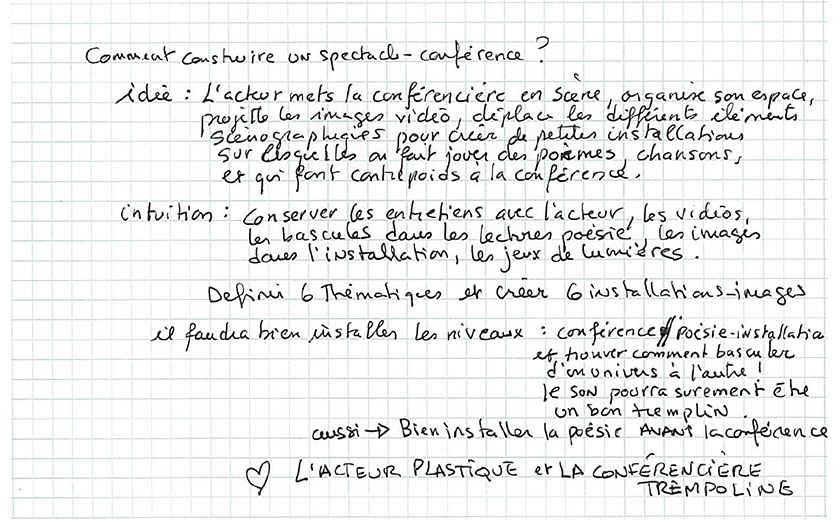 Comment construire un spectacle-conférence ?
idée : L'acteur mets la conférencière en scène, organise son espace,
projette les images vidéo, déplace les différents éléments
scénographiques pour créer de petites installations
sur lesquelles on fait jouer des poèmes, chansons,
et qui font contrepoids à la conférence.
intuition : conserver les entretiens avec l'acteur, les vidéos,
les bascules dans les lectures poésie, les images
dans l'installation, les jeux de lumières.
Définir 6 Thématiques et créer 6 installations-images
il faudra bien installer les niveaux : conférence // poésie-installatio
et trouver comment basculer
d'un univers à l'autre !
le son pourra surement être
un bon tremplin.
aussi → Bien installer la poésie AVANT la conférence
♡ L'ACTEUR PLASTIQUE et LA CONFÉRENCIÈRE
TREMPOLINE